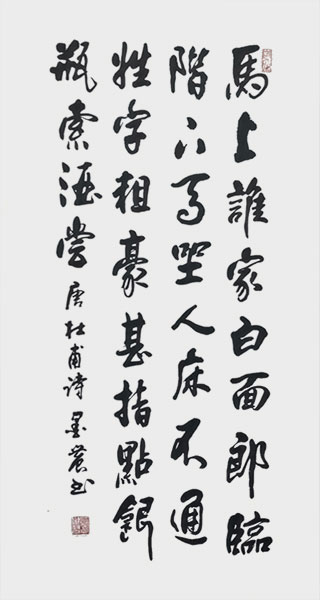 馬上誰家白面郎臨
階下馬坐人床不通
姓字粗豪甚指點銀
瓶索酒嘗 唐杜甫诗 墨農书